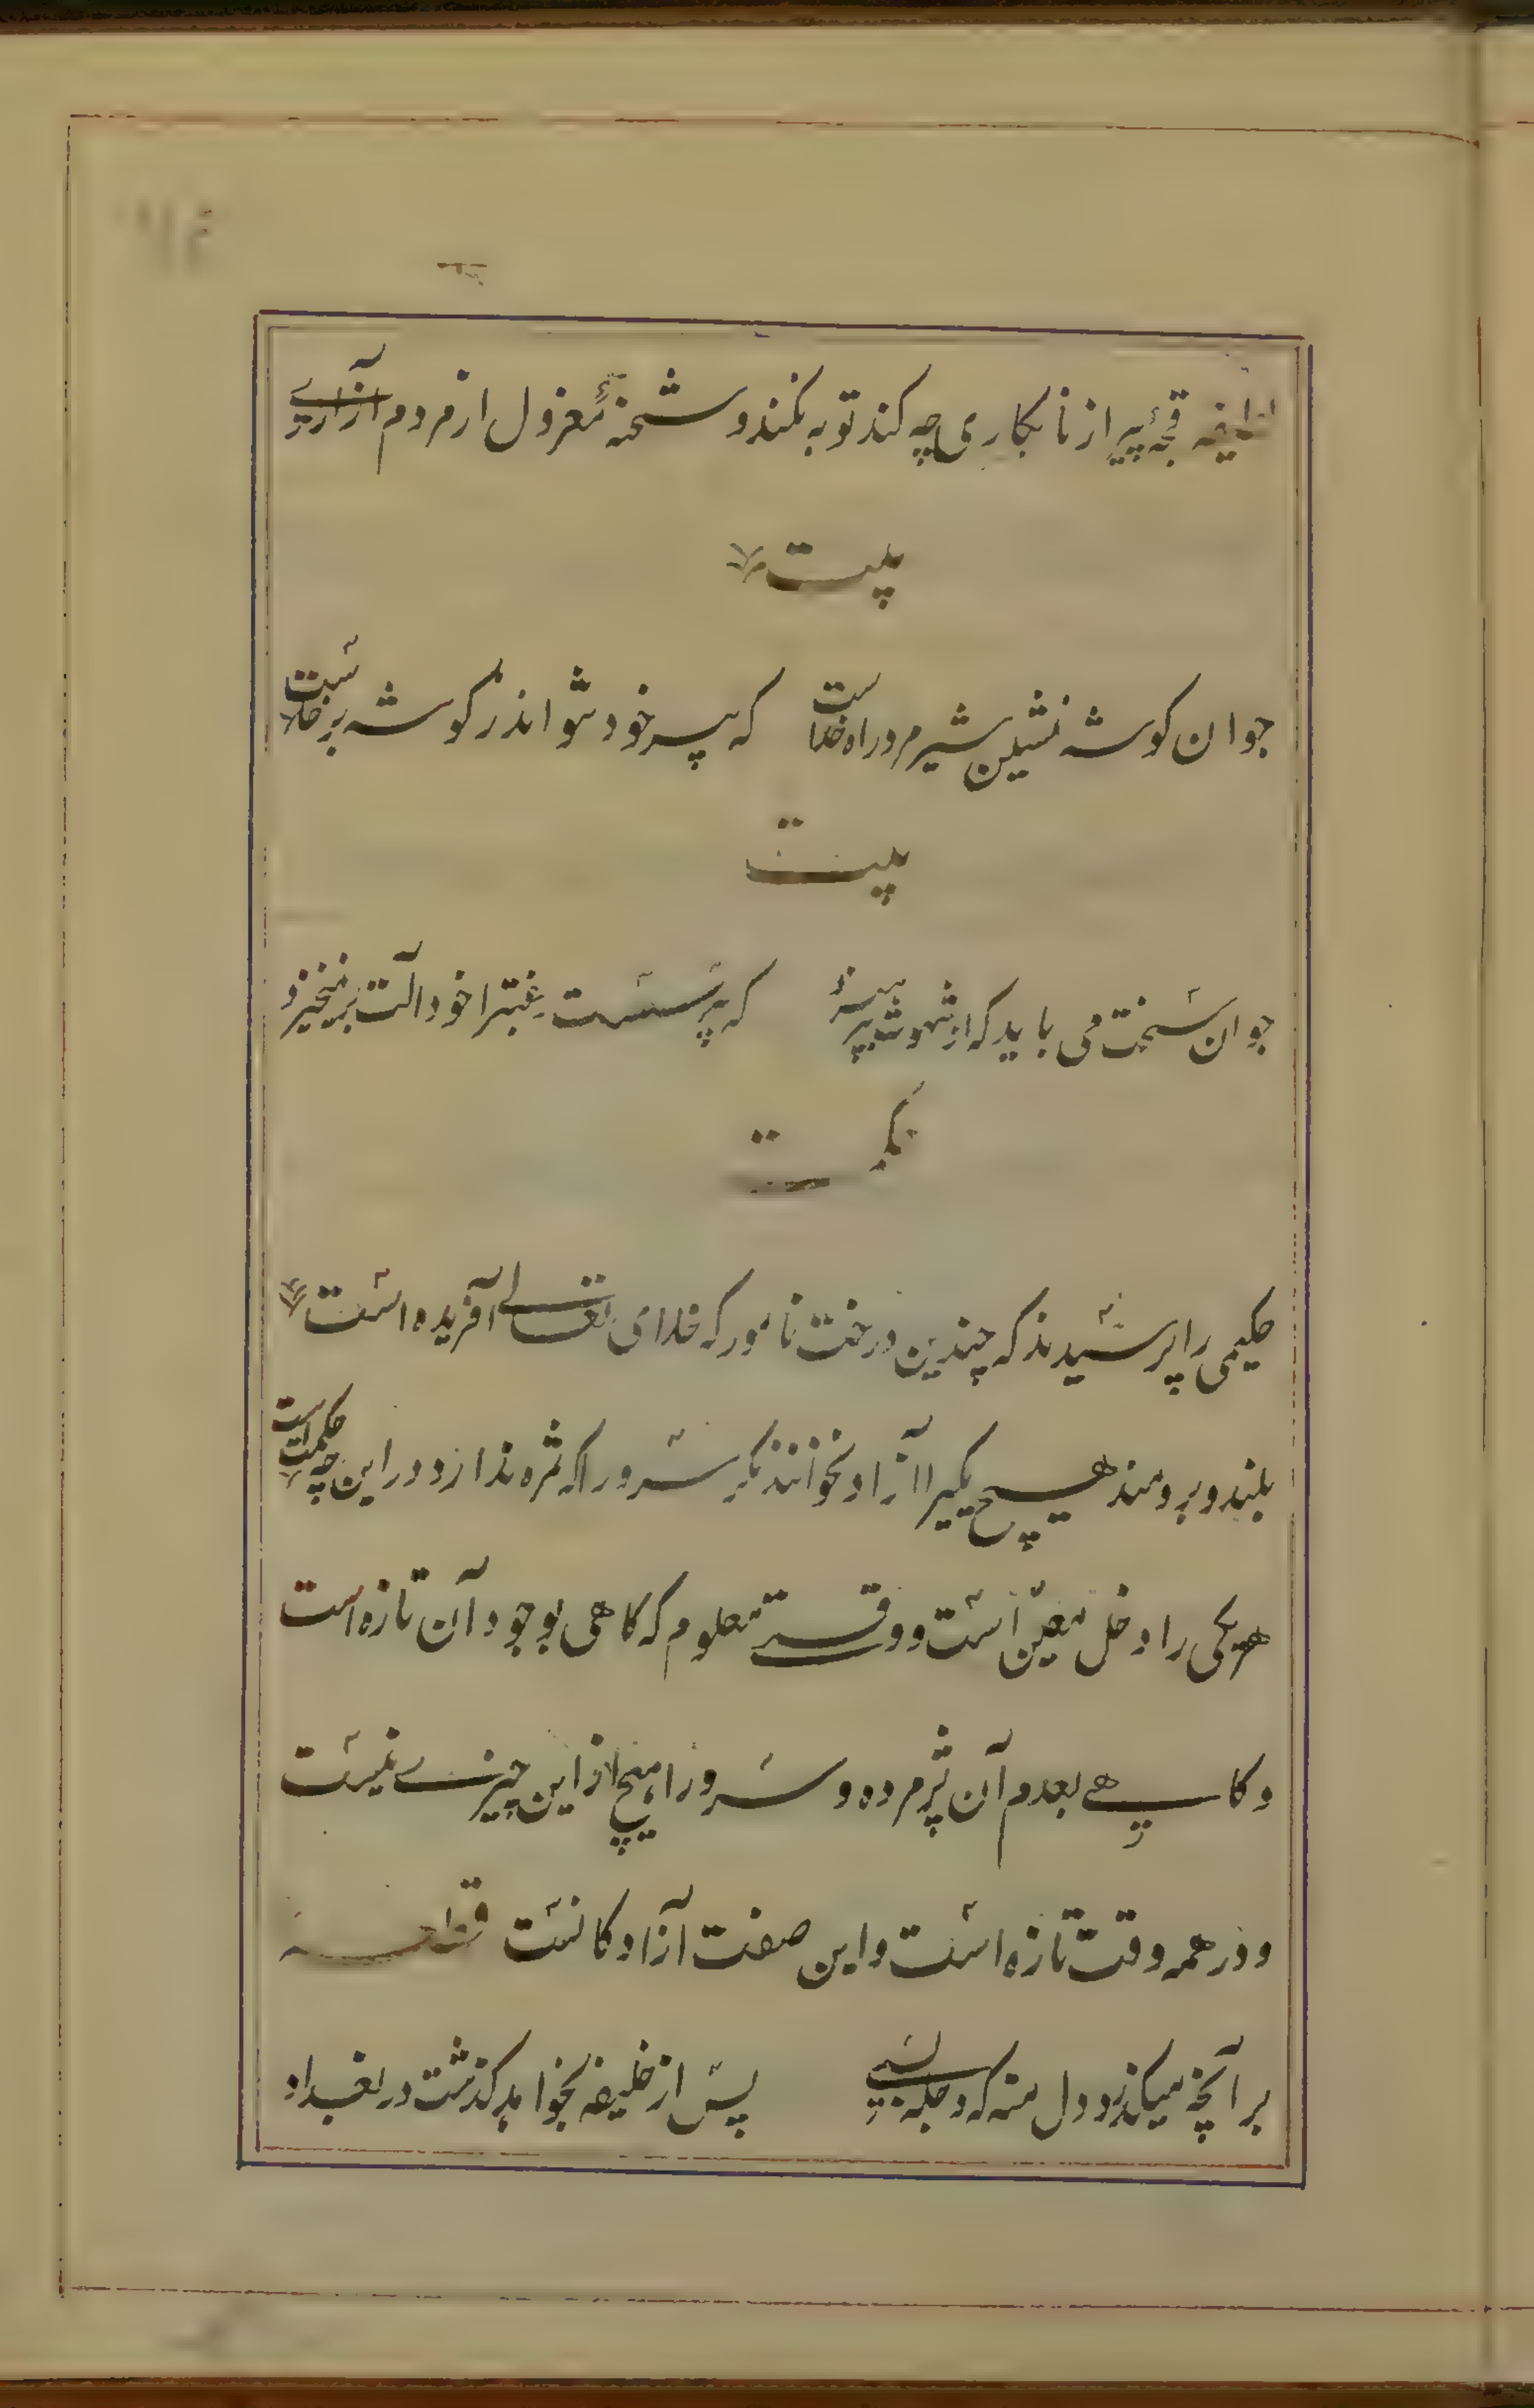 لطیفه قحبهٔ پیر از نابکاری چه کند توبه نکند و شحنهٔ معزول از مردم آزاری
بیت
جوان کوشه نشین شیر مرد راه خداست که پیر خود نتواند ز کوشه برخاست
بیت
جوان سخت می باید که از شهوت بپرهیزد که پیر سست رغبترا خود الت برنمیخیزد
نکت
حکیمی را پرسیدند که چندین درخت نامور که خدای تعالے آفریده است
بلند و برومند هیچ یکیرا آزاد نخوانند مکر سرو را که ثمره ندارد درین چه حکمت است
هر یکی را دخل معین است و وقتے معلوم که کاهی بوجود آن تازه است
و کاهے بعدم آن پژمرده و سرو را هیچ از این چیزے نیست
و در همه وقت تازه است و این صفت آزادکانست قطعه
بر آنچه میکذرد دل منه که دجله بسے پس از خلیفه بخواهد کذشت در بغداد